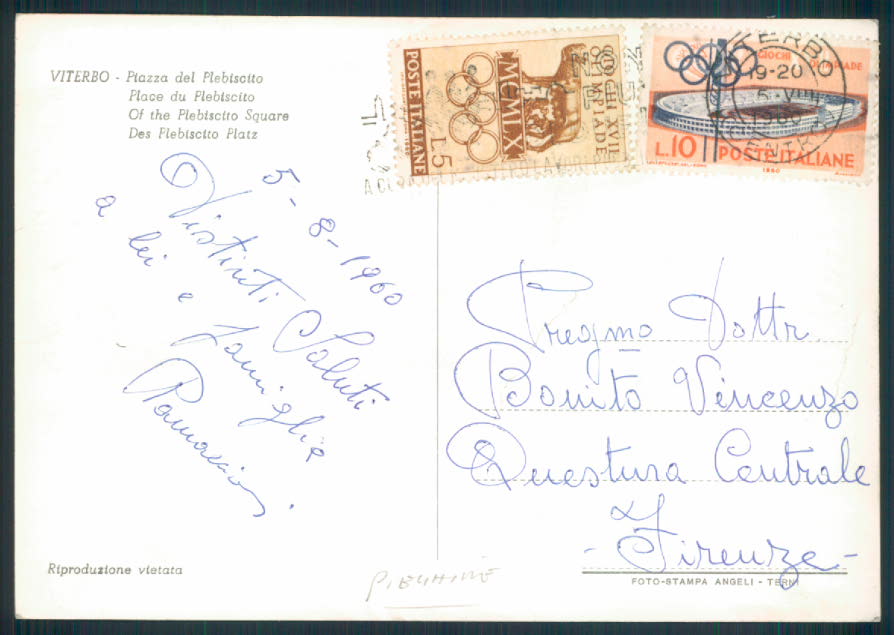 VITERBO - Piazza del Plebiscito
Place du Plebiscito
Of the Plebiscito Square
Des Plebiscito Platz
5-8-1960
Distinti Saluti
a lei e famiglia
POSTE ITALIANE
MCMLX
GIOCHI XVII
OLIMPIADE
L.5
GIOCHI
OLIMPIADE
L.10 POSTE ITALIANE
1960
VITERBO
19-20
5-VIII
1960
CENTRO
Pregmo Dottr.
Bonito Vincenzo
Questura Centrale
- Firenze -
Riproduzione vietata
FOTO-STAMPA ANGELI - TERNI